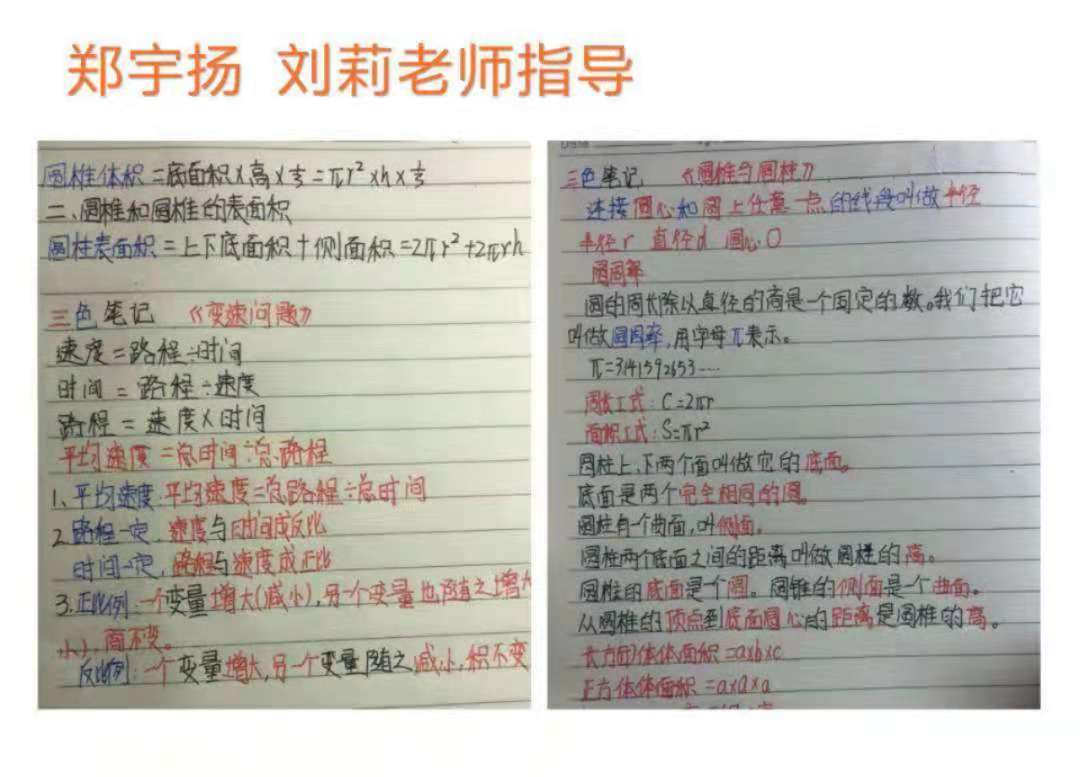 郑宇扬 刘莉老师指导
圆椎体积=底面积×高×⅓=πr²×h×⅓
二、圆椎和圆椎的表面积
圆柱表面积=上下底面积+侧面积=2πr²+2πrh
三色笔记 《变速问题》
速度=路程÷时间
时间=路程÷速度
路程=速度×时间
平均速度=总时间÷总路程
1、平均速度:平均速度=总路程÷总时间
2.路程一定,速度与时间成反比
时间一定,路程与速度成正比
3.正比例:一个变量增大(减小),另一个变量也随之增大
小),商不变。
反比例:一个变量增大,另一个变量随之减小,积不变
三色笔记 《圆椎与圆柱》
连接圆心和圆上任意一点的线段叫做半径
半径r 直径d 圆心O
圆周率
圆的周长除以直径的商是一个固定的数。我们把它
叫做圆周率,用字母π表示。
π=3141592653……
周长工式:C=2πr
面积工式:S=πr²
圆柱上、下两个面叫做它的底面。
底面是两个完全相同的圆。
圆柱有一个曲面,叫侧面。
圆柱两个底面之间的距离叫做圆柱的高。
圆椎的底面是个圆。圆锥的侧面是一个曲面。
从圆椎的顶点到底面圆心的距离是圆椎的高。
长方体体面积=a×b×c
正方体体面积=a×a×a